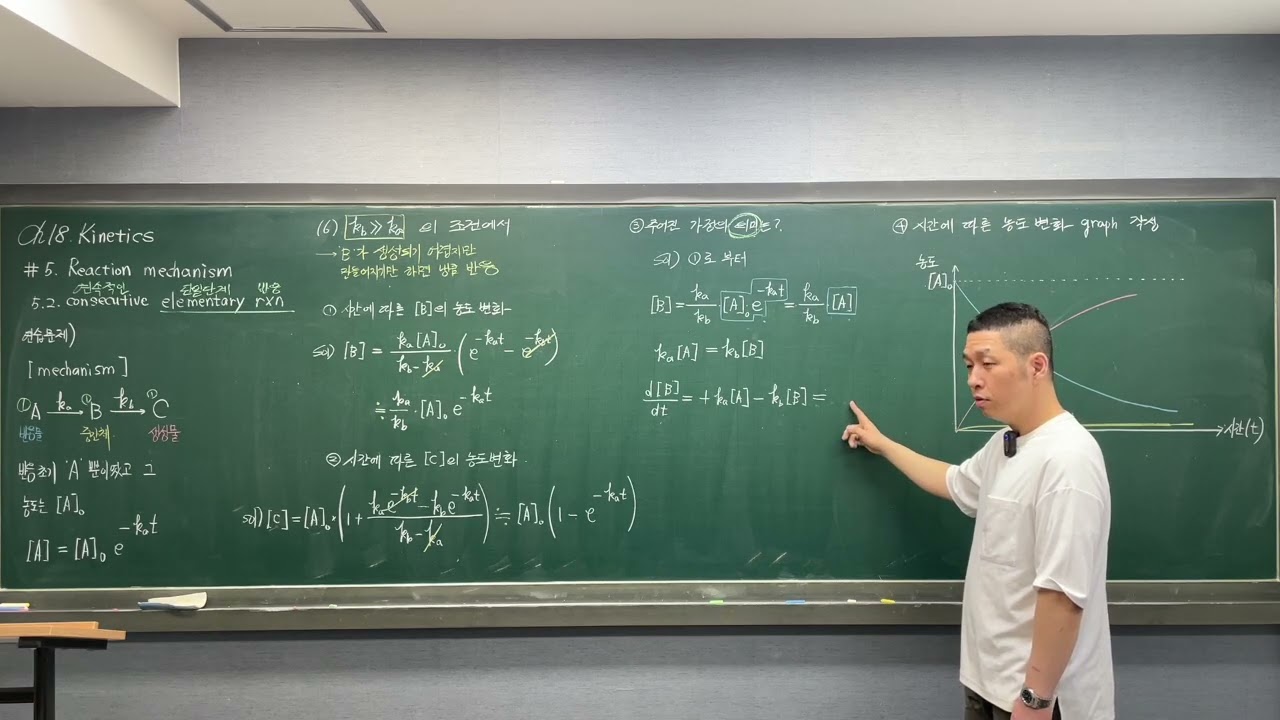 Ch18. Kinetics
#5. Reaction mechanism
연속적인 단일단계 반응
5.2. consecutive elementary rxn
연습문제)
[mechanism]
① ① ①
A →(kₐ) B →(k_b) C
반응물 중간체 생성물
반응초기 'A'뿐이었고 그
농도는 [A]₀
[A] = [A]₀ e^(-kₐt)
(6) k_b ≫ kₐ 의 조건에서
→ 'B'가 생성되기 어렵지만
만들어지기만 하면 바로 반응
① 시간에 따른 [B]의 농도 변화
sol) [B] = kₐ[A]₀/(k_b-kₐ) (e^(-kₐt) - e^(-k_bt))
≒ kₐ/k_b · [A]₀ e^(-kₐt)
② 시간에 따른 [C]의 농도변화
sol) [C] = [A]₀ × (1 + (kₐe^(-k_bt) - k_be^(-kₐt))/(k_b-kₐ)) ≒ [A]₀ (1 - e^(-kₐt))
③ 주어진 가정의 의미는?
sol) ①로 부터
[B] = kₐ/k_b [A]₀ e^(-kₐt) = kₐ/k_b [A]
kₐ[A] = k_b[B]
d[B]/dt = +kₐ[A] - k_b[B] =
④ 시간에 따른 농도 변화 graph 작성
농도
[A]₀
시간(t)